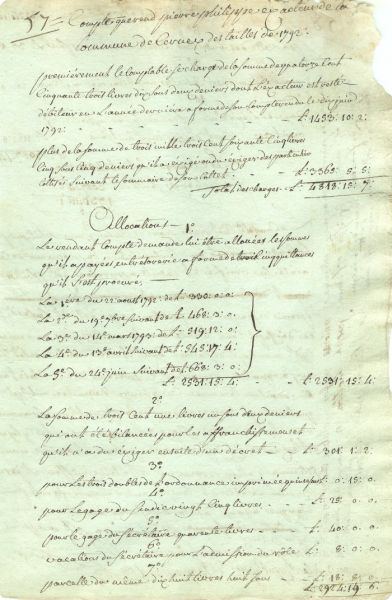 57 = Compte que rend pierre philippe exacteur de la
commune de Cornier des tailles de 1792.
premièrement le comptable se charge de la somme de quatorze Cent
Cinquante trois livres dix sous deux deniers dont l'exacteur est resté
débiteur en l'année dernière a forme de son compte rendu le dix juin
1792: - - - £: 1453: 10: 2:
plus de la somme de trois mille trois Cent soixante Cinq livres
Cinq sous Cinq deniers qu'il a exigé ou dû exiger des particuliers
cottisés suivant le sommaire de son Cottet - £: 3365: 5: 5:
Total des charges - £: 4818: 15: 7:
Allocations - 1º
Le rendant Compte demande lui être allouées les sommes
qu'il a payées en trésorerie a forme de cinq quittances
qu'il s'est procuré -
La 1ère du 22 aout 1792 de £: 330: 0: 0:
La 2de du 19e 7bre suivant de £: 468: 3: 0:
La 3e du 14e mart 1793 de £: 519: 12: 0:
La 4e du 13e avril suivant de £: 545: 17: 4:
La 5e du 24e juin suivant de £: 668: 3: 0:
£: 2531: 15: 4: - - £: 2531: 15: 4:
2º
La somme de trois Cent une livres un sous deux deniers
que ont été bilancées pour les affranchissements et
qu'il n'a dû exiger ensuite d'un décret - £: 301: 1: 2:
3º
pour les trois doubles de l'ordonnance imprimée quinze sous £: 0: 15: 0:
4º
pour le gage du vingt Cinq livres - - £: 25: 0: 0:
5º
pour le gage du secrétaire quarente livres - - £: 40: 0: 0:
6º
vacations du secrétaire pour l'admission du rôle £: 8: 0: 0:
7º
parcelle du même dix huit livres huit sous - £: 18: 8: 0:
£: 2924: 19: 6: